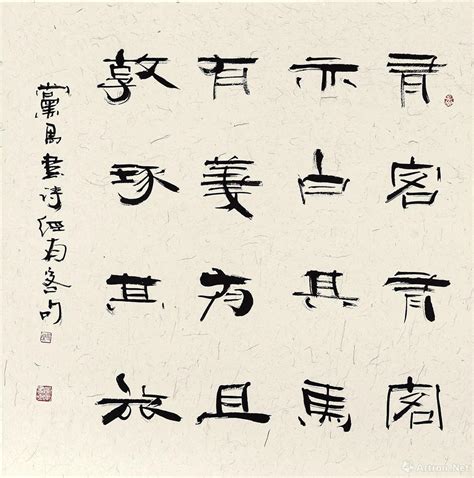 有客有客
亦白其馬
有萋有且
敦琢其旅
黨禹書诗经有客句
Artron.Net